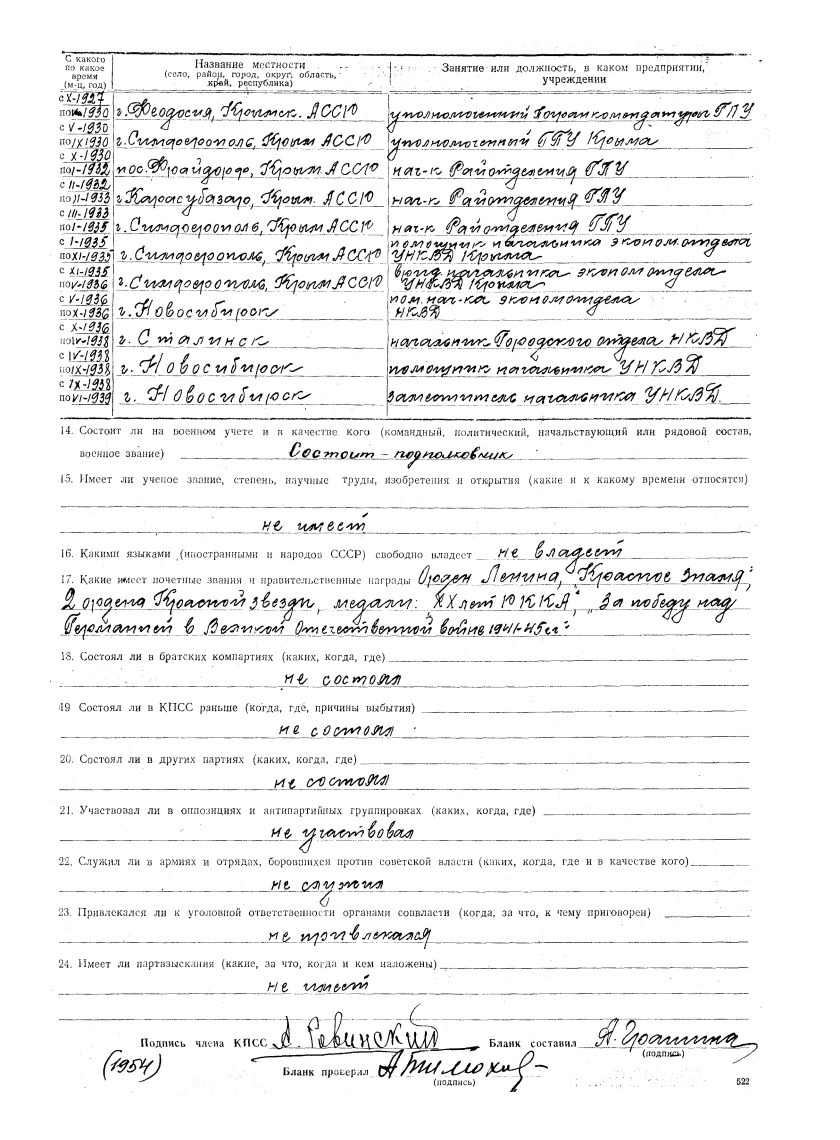 С какого по какое время (м-ц, год) | Название местности (село, район, город, округ, область, край, республика) | Занятие или должность, в каком предприятии, учреждении
с X-1927 по 1930 | г. Феодосия, Крымск. АССР | уполномоченный Погранкомендатуры ГПУ
с V-1930 по IX 1930 | г. Симферополь, Крым АССР | уполномоченный ГПУ Крыма
с X-1930 по I-1932 | пос. Фрайдорф, Крым АССР | нач-к Райотделения ГПУ
с II-1932 по II-1933 | г Карасубазар, Крым. АССР | нач-к Райотделения ГПУ
с III-1933 по I-1935 | г. Симферополь, Крым АССР | нач-к Райотделения ГПУ
с I-1935 по XI-1935 | г. Симферополь, Крым АССР | помощник начальника эконом. отдела УНКВД Крыма
с XI-1935 по V-1936 | г. Симферополь, Крым АССР | врид. начальника эконом отдела УНКВД Крыма
с V-1936 по X-1936 | г. Новосибирск | пом. нач-ка экономотдела НКВД
с X-1936 по IV-1938 | г. Сталинск | начальник Городского отдела НКВД
с IV-1938 по IX-1938 | г. Новосибирск | помощник начальника УНКВД
с IX-1938 по VI-1939 | г. Новосибирск | заместитель начальника УНКВД
14. Состоит ли на военном учете и в качестве кого (командный, политический, начальствующий или рядовой состав,
военное звание) Состоит - подполковник
15. Имеет ли ученое звание, степень, научные труды, изобретения и открытия (какие и к какому времени относятся)
не имеет
16. Какими языками (иностранными и народов СССР) свободно владеет не владеет
17. Какие имеет почетные звания и правительственные награды Орден Ленина, "Красное знамя",
2 ордена Красной звезды, медали: "XX лет РККА", "За победу над
Германией в Великой Отечественной войне 1941-45гг."
18. Состоял ли в братских компартиях (каких, когда, где)
не состоял
19 Состоял ли в КПСС раньше (когда, где, причины выбытия)
не состоял
20. Состоял ли в других партиях (каких, когда, где)
не состоял
21. Участвовал ли в оппозициях и антипартийных группировках (каких, когда, где)
не участвовал
22. Служил ли в армиях и отрядах, боровшихся против советской власти (каких, когда, где и в качестве кого)
не служил
23. Привлекался ли к уголовной ответственности органами соввласти (когда, за что, к чему приговорен)
не привлекался
24. Имеет ли партвзыскания (какие, за что, когда и кем наложены)
не имеет
Подпись члена КПСС А. Ревинский Бланк составил
(подпись)
(1954) Бланк проверил
(подпись)
522